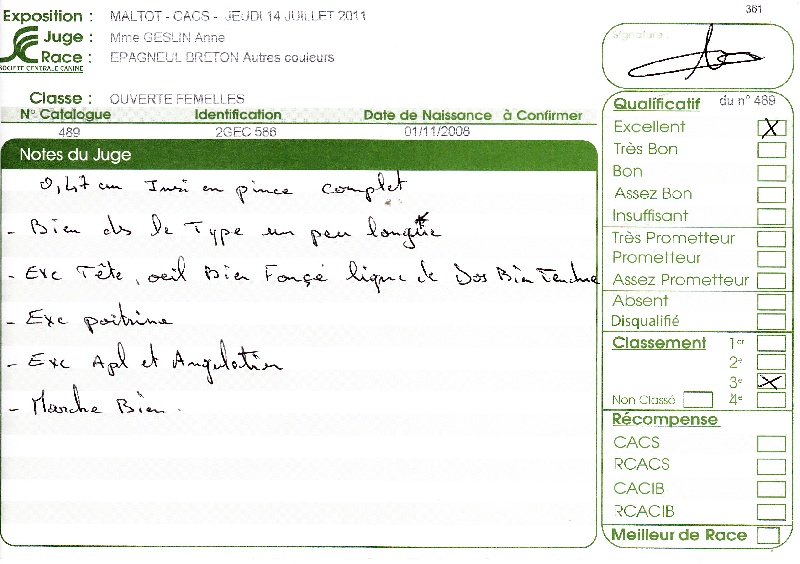 361
Exposition : MALTOT - CACS - JEUDI 14 JUILLET 2011
Juge : Mme GESLIN Anne
Race : EPAGNEUL BRETON Autres couleurs
SOCIETE CENTRALE CANINE
Signature
Classe : OUVERTE FEMELLES
N° Catalogue Identification Date de Naissance à Confirmer
489 2GEC 586 01/11/2008
Notes du Juge
0,47 cm en pince complet
- Bien ds le Type un peu longue
- Exc Tête, oeil Bien Fonçé ligne de Dos Bien Tendue
- Exc poitrine
- Exc Apl et Angulation
- Marche Bien.
Qualificatif du n° 489
Excellent X
Très Bon
Bon
Assez Bon
Insuffisant
Très Prometteur
Prometteur
Assez Prometteur
Absent
Disqualifié
Classement 1er
2e
3e X
Non Classé 4e
Récompense
CACS
RCACS
CACIB
RCACIB
Meilleur de Race